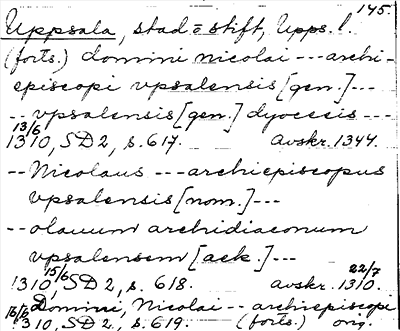 145.
Uppsala, stad o stift, Upps. l.
(forts.) domini nicolai --- archi-
episcopi vpsalensis [gen.] ---
-- vpsalensis [gen.] dyocesis ---
13/6 1310, SD 2, s. 617. avskr. 1344.
-- Nicolaus --- archiepiscopus
vpsalensis [nom.] ---
-- olauum archidiaconum
vpsalensem [ack.] ---
15/6 1310, SD 2, s. 618. avskr. 22/7 1310.
Domini, Nicolai -- archiepiscopi
1310, SD 2, s. 619. (forts.) orig.